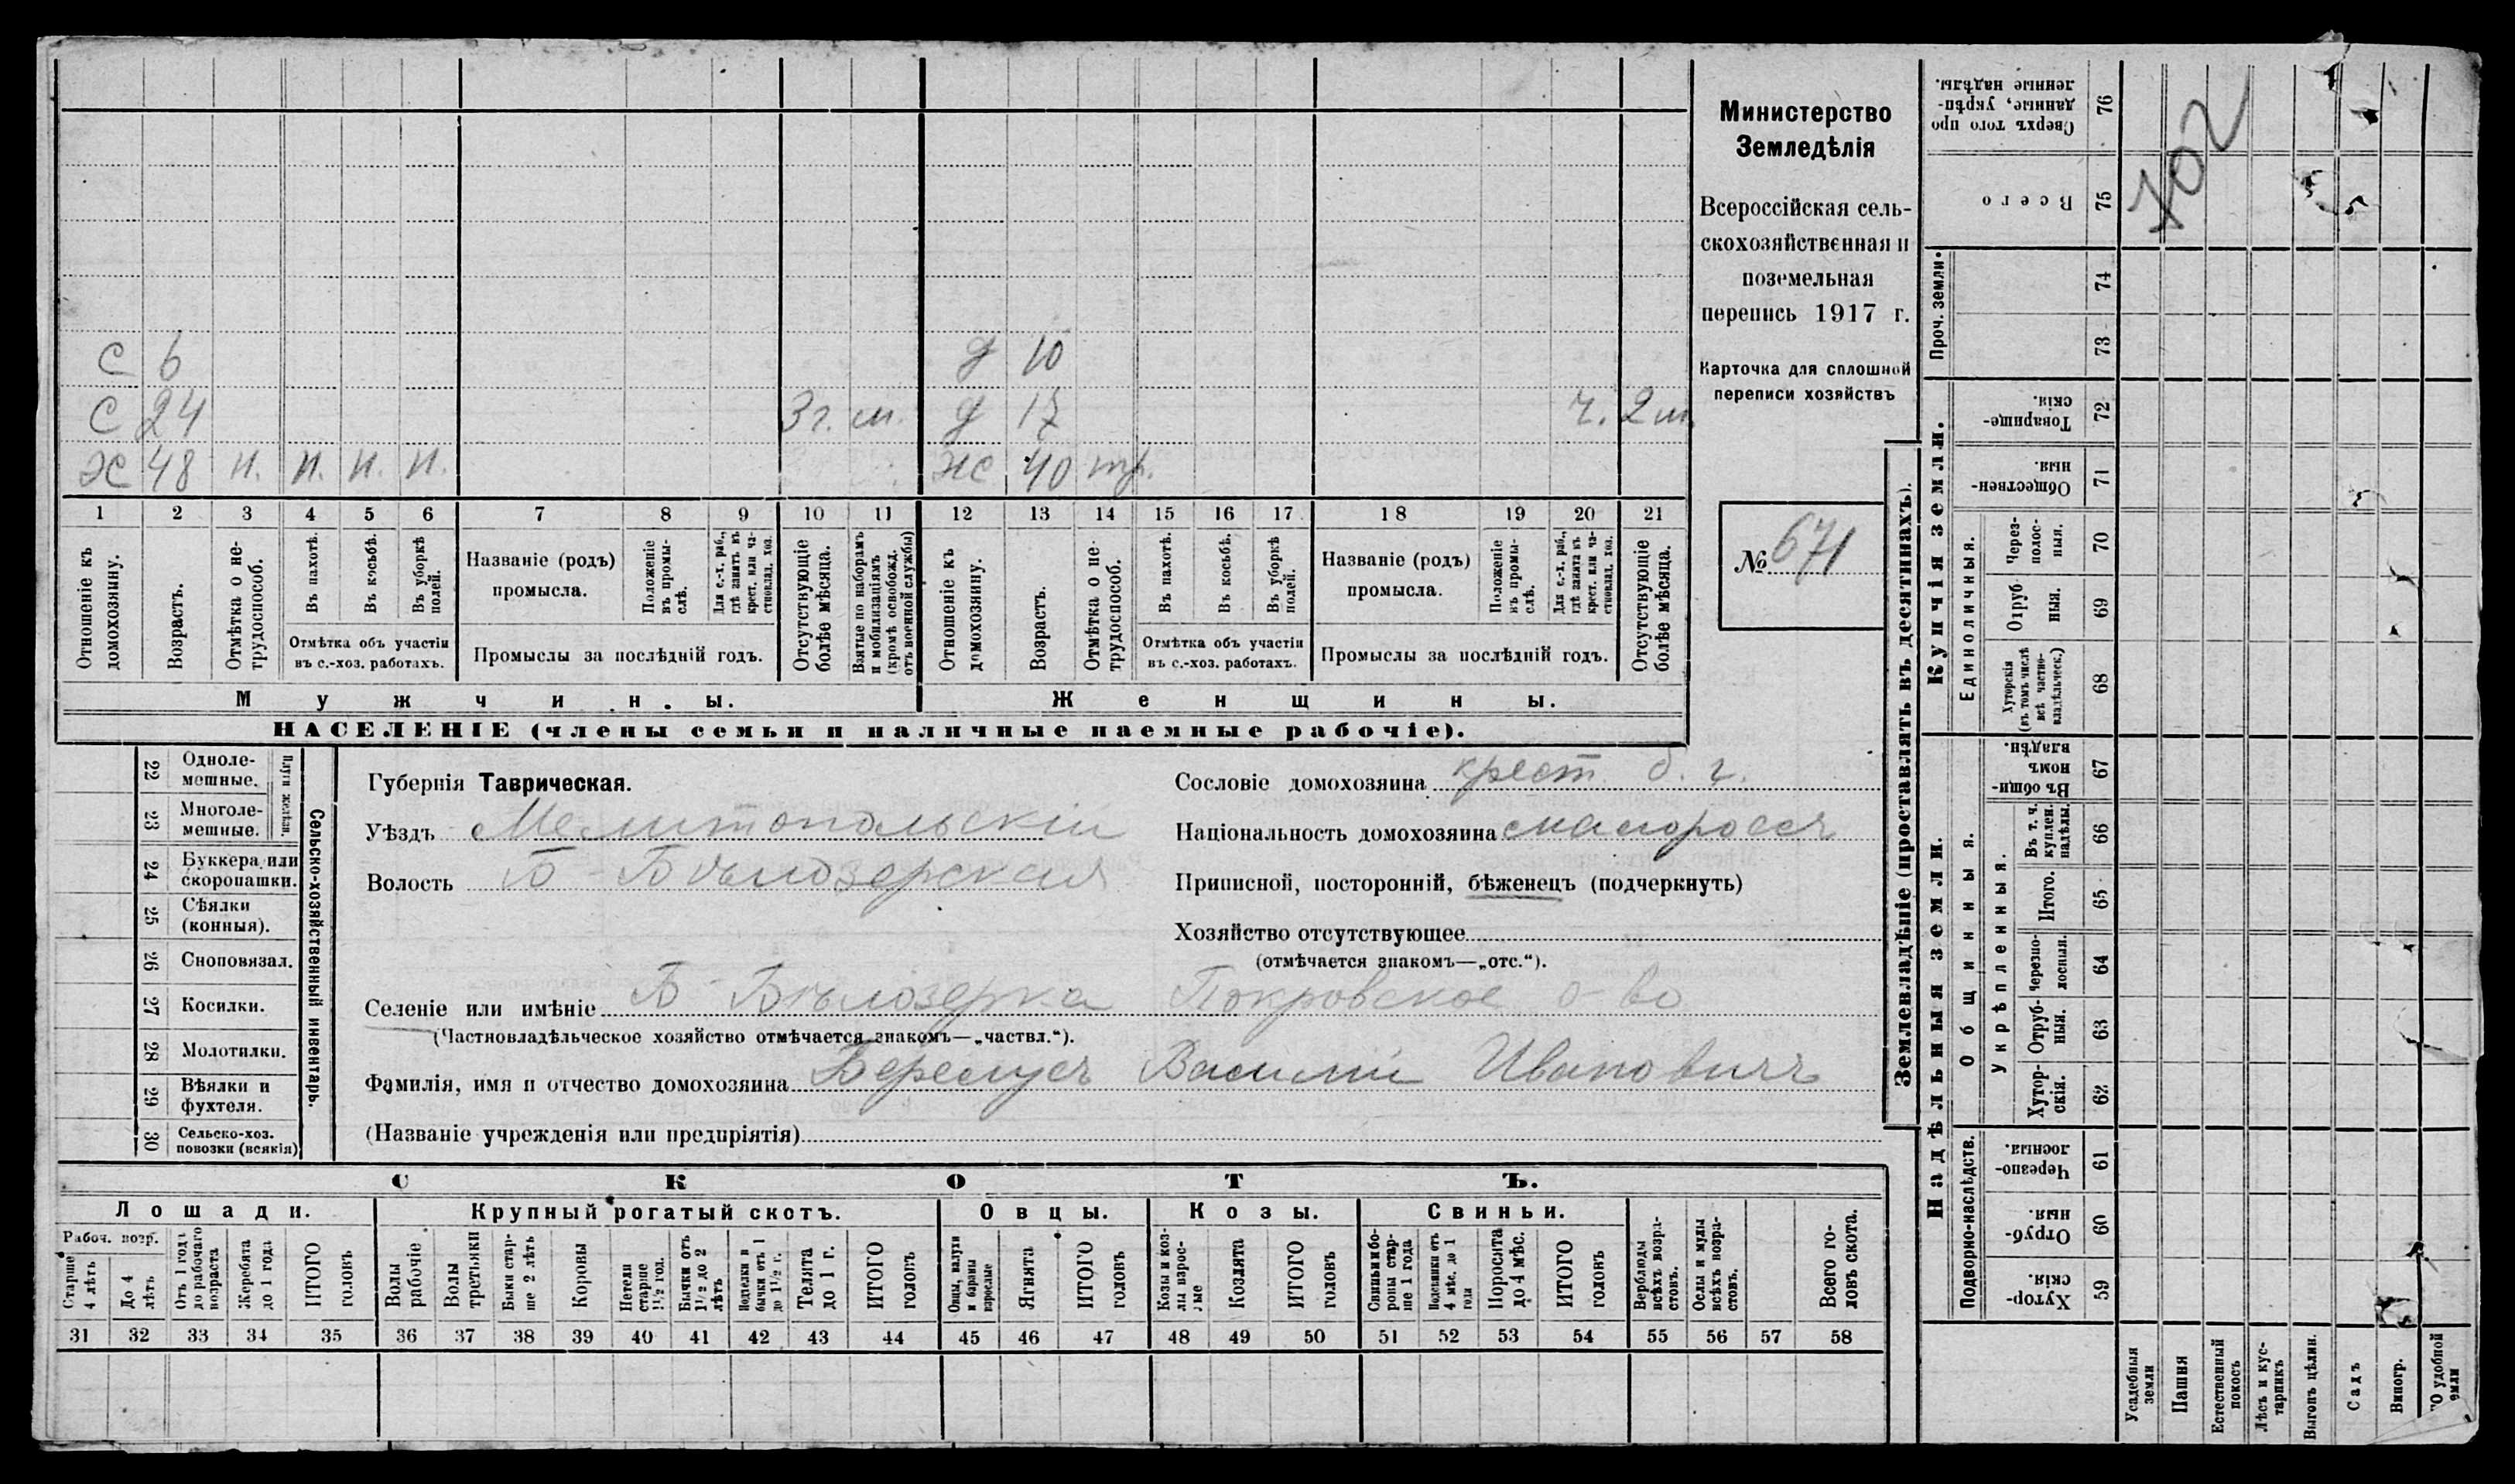 С 6 д 10
С 24 3 г. м. д 17 ч. 2 м.
Х 48 п. п. п. п. ж 40 тр.
1 2 3 4 5 6 7 8 9 10 11 12 13 14 15 16 17 18 19 20 21
Отношеніе къ домохозяину.
Возрастъ.
Отмѣтка о не-трудоспособ.
Въ пахотѣ.
Въ косьбѣ.
Въ уборкѣ полей.
Отмѣтка объ участіи
въ с.-хоз. работахъ.
Названіе (родъ)
промысла.
Положеніе въ промы-слѣ.
Для с.-х. раб., гдѣ занятъ въ крест. или ча-стновлад. хоз.
Промыслы за послѣдній годъ.
Отсутствующіе болѣе мѣсяца.
Взятые по наборамъ и мобилизаціямъ (кромѣ освобожд. отъ военной службы)
Отношеніе къ домохозяину.
Возрастъ.
Отмѣтка о не-трудоспособ.
Въ пахотѣ.
Въ косьбѣ.
Въ уборкѣ полей.
Отмѣтка объ участіи
въ с.-хоз. работахъ.
Названіе (родъ)
промысла.
Положеніе въ промы-слѣ.
Для с.-х. раб., гдѣ занята въ крест. или ча-стновлад. хоз.
Промыслы за послѣдній годъ.
Отсутствующіе болѣе мѣсяца.
Мужчины. Женщины.
НАСЕЛЕНІЕ (члены семьи и наличные наемные рабочіе).
Министерство
Земледѣлія
Всероссійская сель-
скохозяйственная и
поземельная
перепись 1917 г.
Карточка для сплошной
переписи хозяйствъ
№ 671
Сельско-хозяйственный инвентарь.
Плуги желѣзн.
22 Одноле-мешные.
23 Многоле-мешные.
24 Буккера или скоропашки.
25 Сѣялки (конныя).
26 Сноповязал.
27 Косилки.
28 Молотилки.
29 Вѣялки и фухтеля.
30 Сельско-хоз. повозки (всякія)
Губернія Таврическая.
Уѣздъ Мелитопольскій
Волость Б-Бѣлозерская
Сословіе домохозяина крест. б. г.
Національность домохозяина малоросъ
Приписной, посторонній, бѣженецъ (подчеркнуть)
Хозяйство отсутствующее
(отмѣчается знакомъ—„отс.“).
Селеніе или имѣніе Б-Бѣлозерка Покровское о-во
(Частновладѣльческое хозяйство отмѣчается знакомъ—„частвл.“).
Фамилія, имя и отчество домохозяина Василій Ивановичъ
(Названіе учрежденія или предпріятія)
СКОТЪ.
Лошади. Крупный рогатый скотъ. Овцы. Козы. Свиньи.
Рабоч. возр.
Старше 4 лѣтъ
До 4 лѣтъ
Отъ 1 года до рабочаго возраста
Жеребята до 1 года
ИТОГО головъ
Волы рабочіе
Волы третьяки
Быки стар-ше 2 лѣтъ
Коровы
Нетели старше 1½ год.
Бычки отъ 1½ до 2 лѣтъ
Подтелки и бычки отъ 1 до 1½ г.
Телята до 1 г.
ИТОГО головъ
Овцы, валухи и бараны взрослые
Ягнята
ИТОГО головъ
Козы и коз-лы взрос-лые
Козлята
ИТОГО головъ
Свиньи и бо-ровы стар-ше 1 года
Подсвинки отъ 4 мѣс. до 1 года
Поросята до 4 мѣс.
ИТОГО головъ
Верблюды всѣхъ возра-стовъ.
Ослы и мулы всѣхъ возра-стовъ.
Всего го-ловъ скота.
31 32 33 34 35 36 37 38 39 40 41 42 43 44 45 46 47 48 49 50 51 52 53 54 55 56 57 58
Землевладѣніе (проставлять въ десятинахъ).
Сверхъ того про данные, укрѣп-ленные надѣлы. 76
Всего 75
Проч. земли.
74
73
Купчія земли.
Товарище-скія. 72
Обществен-ныя. 71
Единоличныя.
Через-полос-ныя. 70
Отруб-ныя. 69
Хуторскія (въ томъ числѣ всѣ частно-владѣльческ.) 68
Надѣльныя земли.
Общинныя.
Въ общи-номъ владѣн. 67
Укрѣпленныя.
Въ т. ч. куплен. надѣлы. 66
Итого. 65
Черезпо-лосныя. 64
Отруб-ныя. 63
Хутор-скія. 62
Подворно-наслѣдств.
Черезпо-лосныя. 61
Отруб-ныя. 60
Хутор-скія. 59
Усадебныя земли
Пашня
Естественный покосъ
Лѣсъ и кус-тарникъ
Выгонъ цѣлин.
Садъ
Виногр.
О удобной земли
702